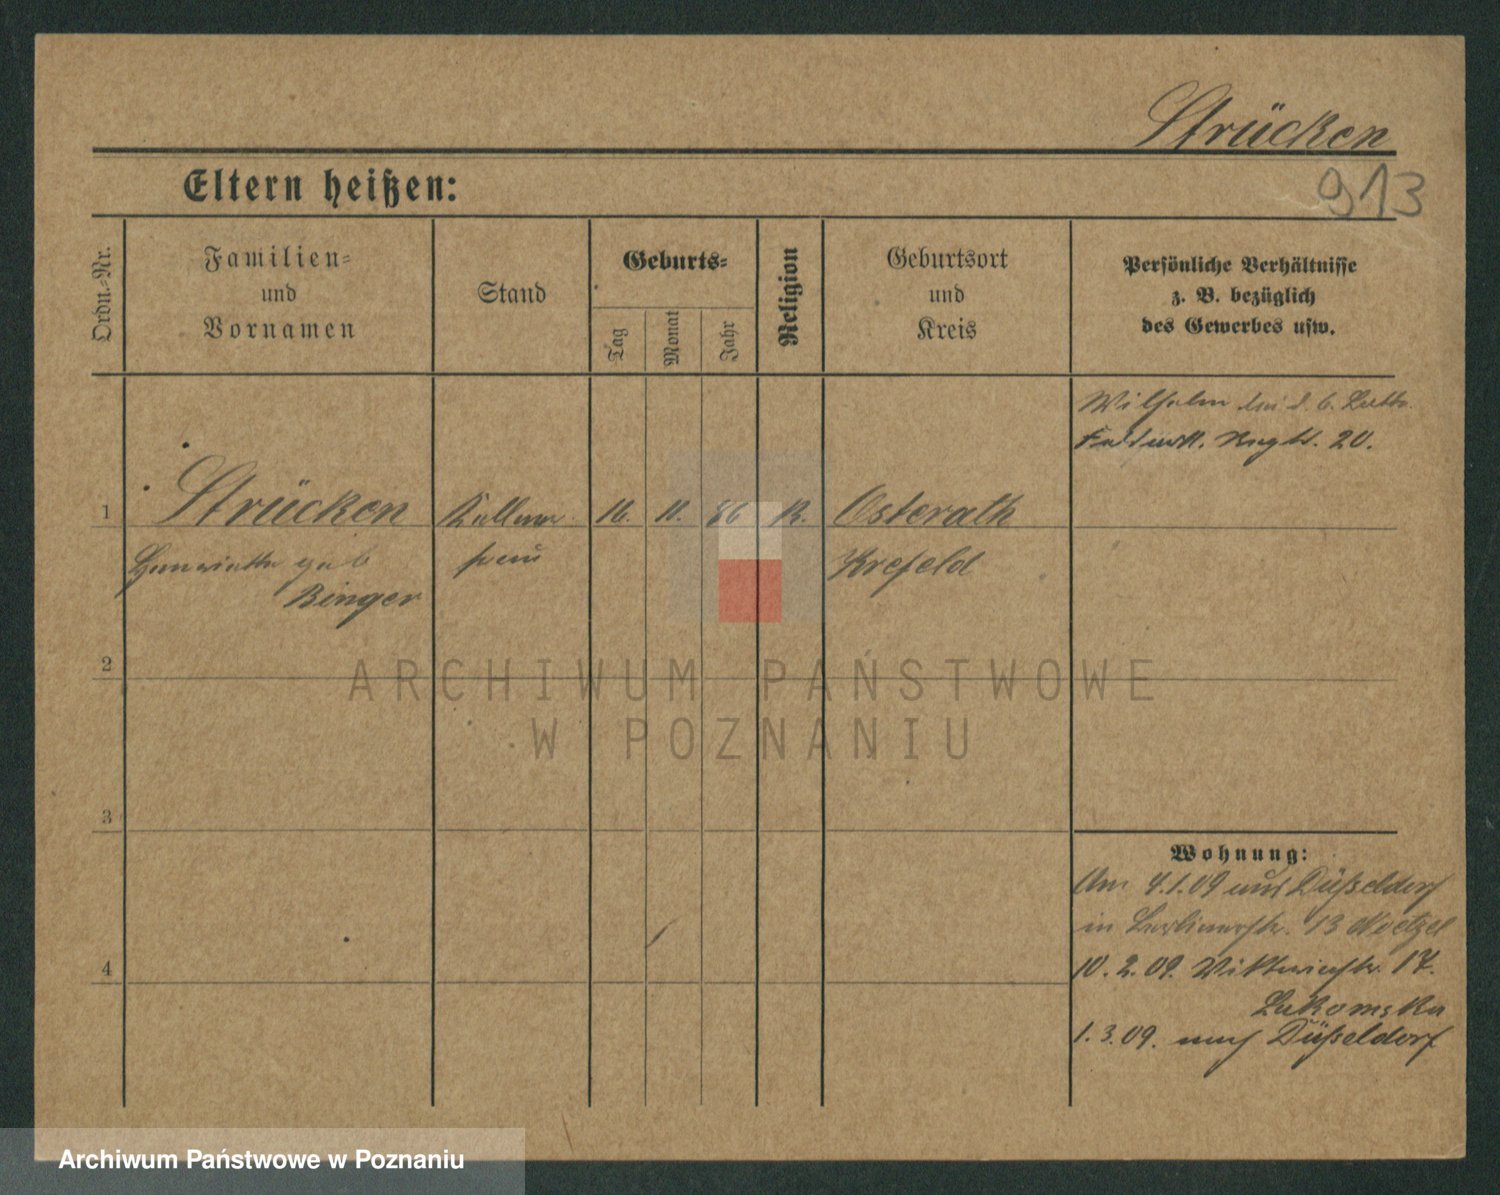 Strücken
913
Eltern heißen:
Ordn.-Nr.
Familien-
und
Vornamen
Stand
Geburts-
Tag
Monat
Jahr
Religion
Geburtsort
und
Kreis
Persönliche Verhältnisse
z. B. bezüglich
des Gewerbes usw.
Wilhelm bei d. 6.
Regt. 20.
1 Strücken Kellner 16. 11. 86 K. Osterath
Henriette geb frau Krefeld
Binger
2
3
4
Wohnung:
Am 4.1.09 aus Düßeldorf
in Berlinerstr. 13 Noetzel
10.2.09. Viktoriastr. 17.
Lukomska
1.3.09. nach Düßeldorf
ARCHIWUM PAŃSTWOWE
W POZNANIU
Archiwum Państwowe w Poznaniu